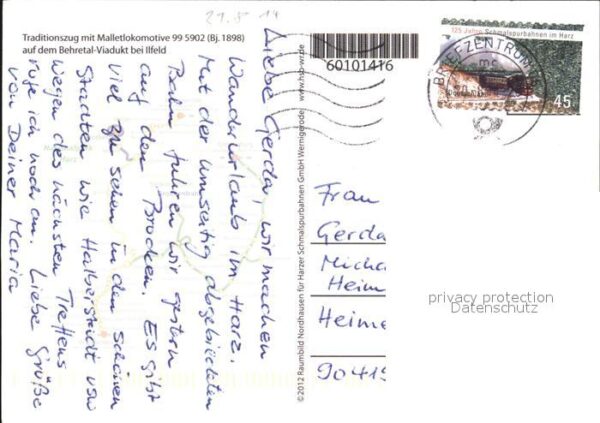 21.5.14
Traditionszug mit Malletlokomotive 99 5902 (Bj. 1898)
auf dem Behretal-Viadukt bei Ilfeld
Liebe Gerda, wir machen
Wanderurlaub im Harz.
Mit der umseitig abgebildeten
Bahn fuhren wir gestern
auf den Brocken. Es gibt
viel zu sehen in den schönen
Städten wie Halberstadt usw
Wegen des nächsten Treffens
rufe ich noch an. Liebe Grüße
von Deiner Maria
© 2012 Raumbild Nordhausen für Harzer Schmalspurbahnen GmbH Wernigerode / www.hsb-wr.de
60101416
125 Jahre Schmalspurbahnen im Harz
45
BRIEFZENTRUM
Frau
Gerda
Micha
Heim
Heime
90419
privacy protection
Datenschutz